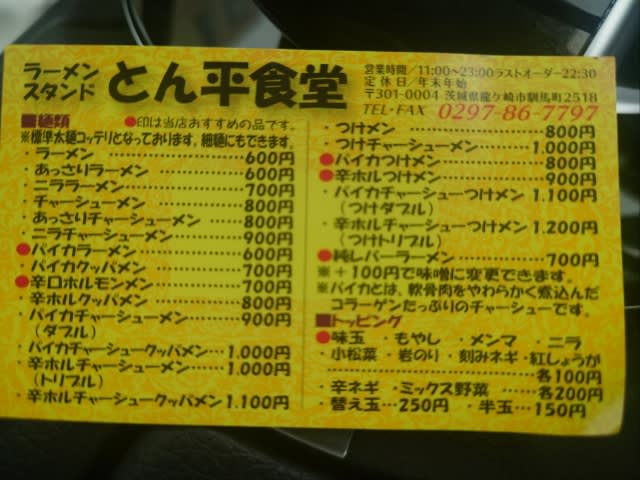 ラーメン
スタンド
とん平食堂
営業時間/11:00~23:00ラストオーダー22:30
定休日/年末年始
〒301-0004 茨城県龍ケ崎市馴馬町2518
TEL・FAX 0297-86-7797
■麺類 ●印は当店おすすめの品です。
※標準太麺コッテリとなっております。細麺にもできます。
・ラーメン ……………600円
・あっさりラーメン …………600円
・ニララーメン ……………700円
・チャーシューメン …………800円
・あっさりチャーシューメン ……800円
・ニラチャーシューメン ………900円
●パイカラーメン …………600円
・パイカクッパメン …………700円
●辛口ホルモンメン …………700円
・辛ホルクッパメン …………800円
・パイカチャーシューメン………900円
(ダブル)
・パイカチャーシュークッパメン…1.000円
・辛ホルチャーシューメン ……1.000円
(トリプル)
・辛ホルチャーシュークッパメン 1.100円
・つけメン ……………800円
・つけチャーシューメン ………1.000円
●パイカつけメン …………800円
●辛ホルつけメン …………900円
・パイカチャーシューつけメン 1.100円
(つけダブル)
・辛ホルチャーシューつけメン 1.200円
(つけトリプル)
●純レバーラーメン …………700円
※+100円で味噌に変更できます。
※パイカとは、軟骨肉をやわらかく煮込んだ
コラーゲンたっぷりのチャーシューです。
■トッピング
●味玉 ・もやし ・メンマ ・ニラ
・小松菜 ・岩のり ・刻みネギ・紅しょうが
……………………各100円
・辛ネギ ・ミックス野菜 ……各200円
・替え玉…250円 ・半玉…150円